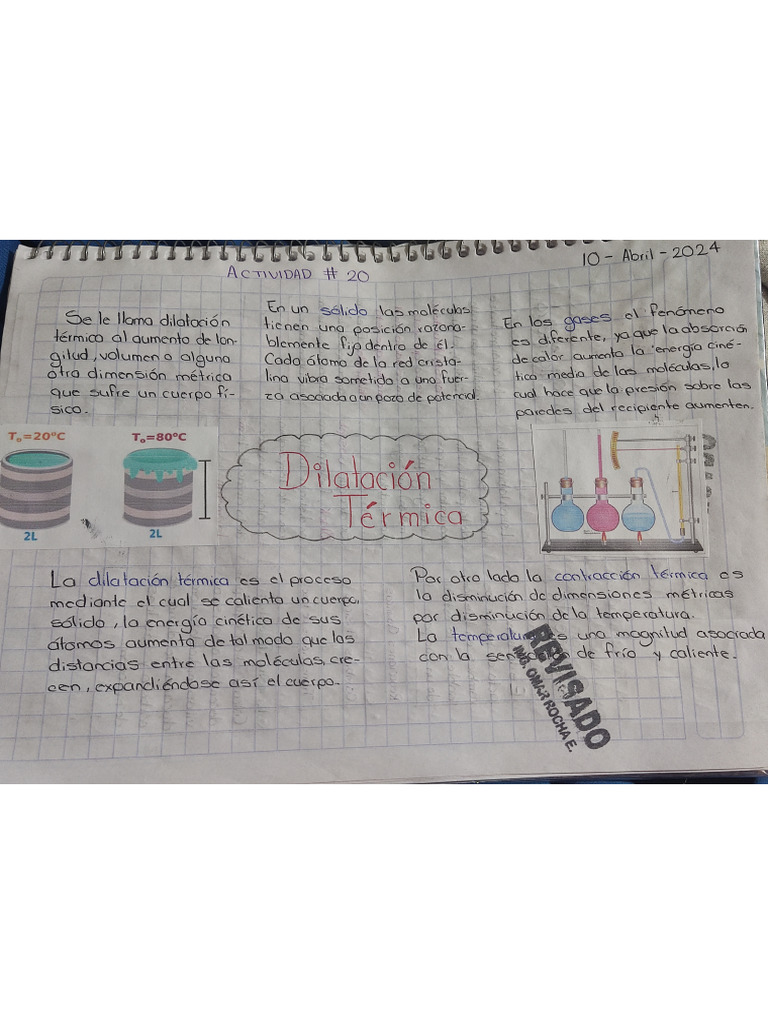 10 - Abril - 2024
ACTIVIDAD # 20
Se le llama dilatación
térmica al aumento de lon-
gitud, volumen o alguna
otra dimensión métrica
que sufre un cuerpo fí-
sico.
En un sólido las moléculas
tienen una posición razona-
blemente fijo dentro de él.
Cada átomo de la red crista-
lina vibra sometido a una fuer-
za asociada a un pozo de potencial.
En los gases el fenómeno
es diferente, ya que la absorción
de calor aumenta la energía ciné-
tica media de las moléculas, lo
cual hace que la presión sobre las
paredes del recipiente aumenten.
T₀=20°C
T₀=80°C
2L
2L
Dilatación
Térmica
La dilatación térmica es el proceso
mediante el cual se calienta un cuerpo,
sólido, la energía cinética de sus
átomos aumenta de tal modo que las
distancias entre las moléculas, cre-
cen, expandiéndose así el cuerpo.
Por otro lado la contracción térmica es
la disminución de dimensiones métricas
por disminución de la temperatura.
La es una magnitud asociada
con la de frío y caliente.
REVISADO
ING. OMAR ROCHA E.